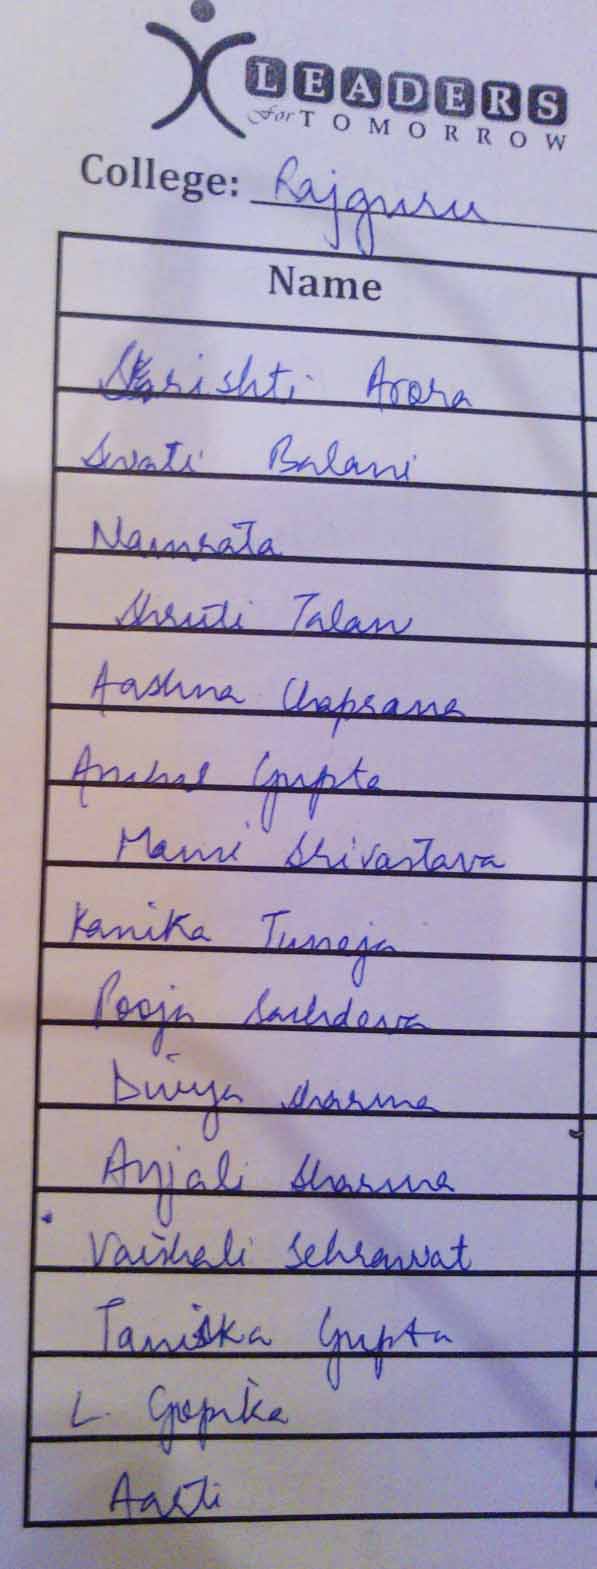 LEADERS
For TOMORROW
College: Rajguru
Name
Srishti Arora
Swati Balani
Namrata
Shruti Talan
Aashna Chaprana
Anchal Gupta
Mansi Srivastava
Kanika Tuneja
Pooja Sachdeva
Divya Sharma
Anjali Sharma
Vaishali Sehrawat
Taniska Gupta
L. Gopika
Aarti